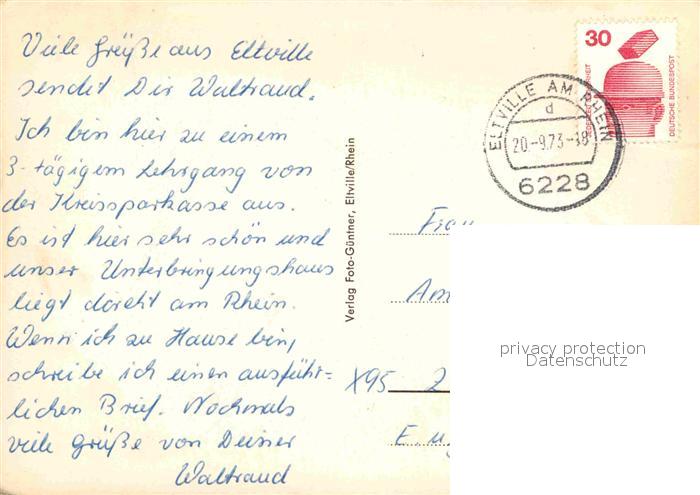 Viele Grüße aus Eltville
sendet Dir Waltraud.
Ich bin hier zu einem
3-tägigem Lehrgang von
der Kreissparkasse aus.
Es ist hier sehr schön und
unser Unterbringungshaus
liegt direkt am Rhein.
Wenn ich zu Hause bin,
schreibe ich einen ausführ=
lichen Brief. Nochmals
viele Grüße von Deiner
Waltraud
Verlag Foto-Güntner, Eltville/Rhein
30
DEUTSCHE BUNDESPOST
ELTVILLE AM RHEIN
d
20.-9.73-18
6228
Frau
Am
X95 2
E. u
privacy protection
Datenschutz